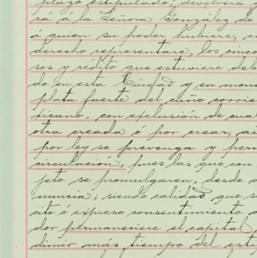 plazo estipulado, devolverá
rá á la Señora Gonzalez de
á quien su poder hubiere, en
derecho representare, los cinco
sos y rédito que estuviere debi
do en esta Ciudad y en mone
plata fuerte del cuño corrien
xicano, con exclusion de cual
otra creada ó por crear, aú
por ley se prevenga y perm
circulacion, pues las que con
jeto se promulgaren, desde a
nuncia; siendo calidad que s
cito ó expreso consentimiento
dor permaneciere el capital
dimir más tiempo del esti